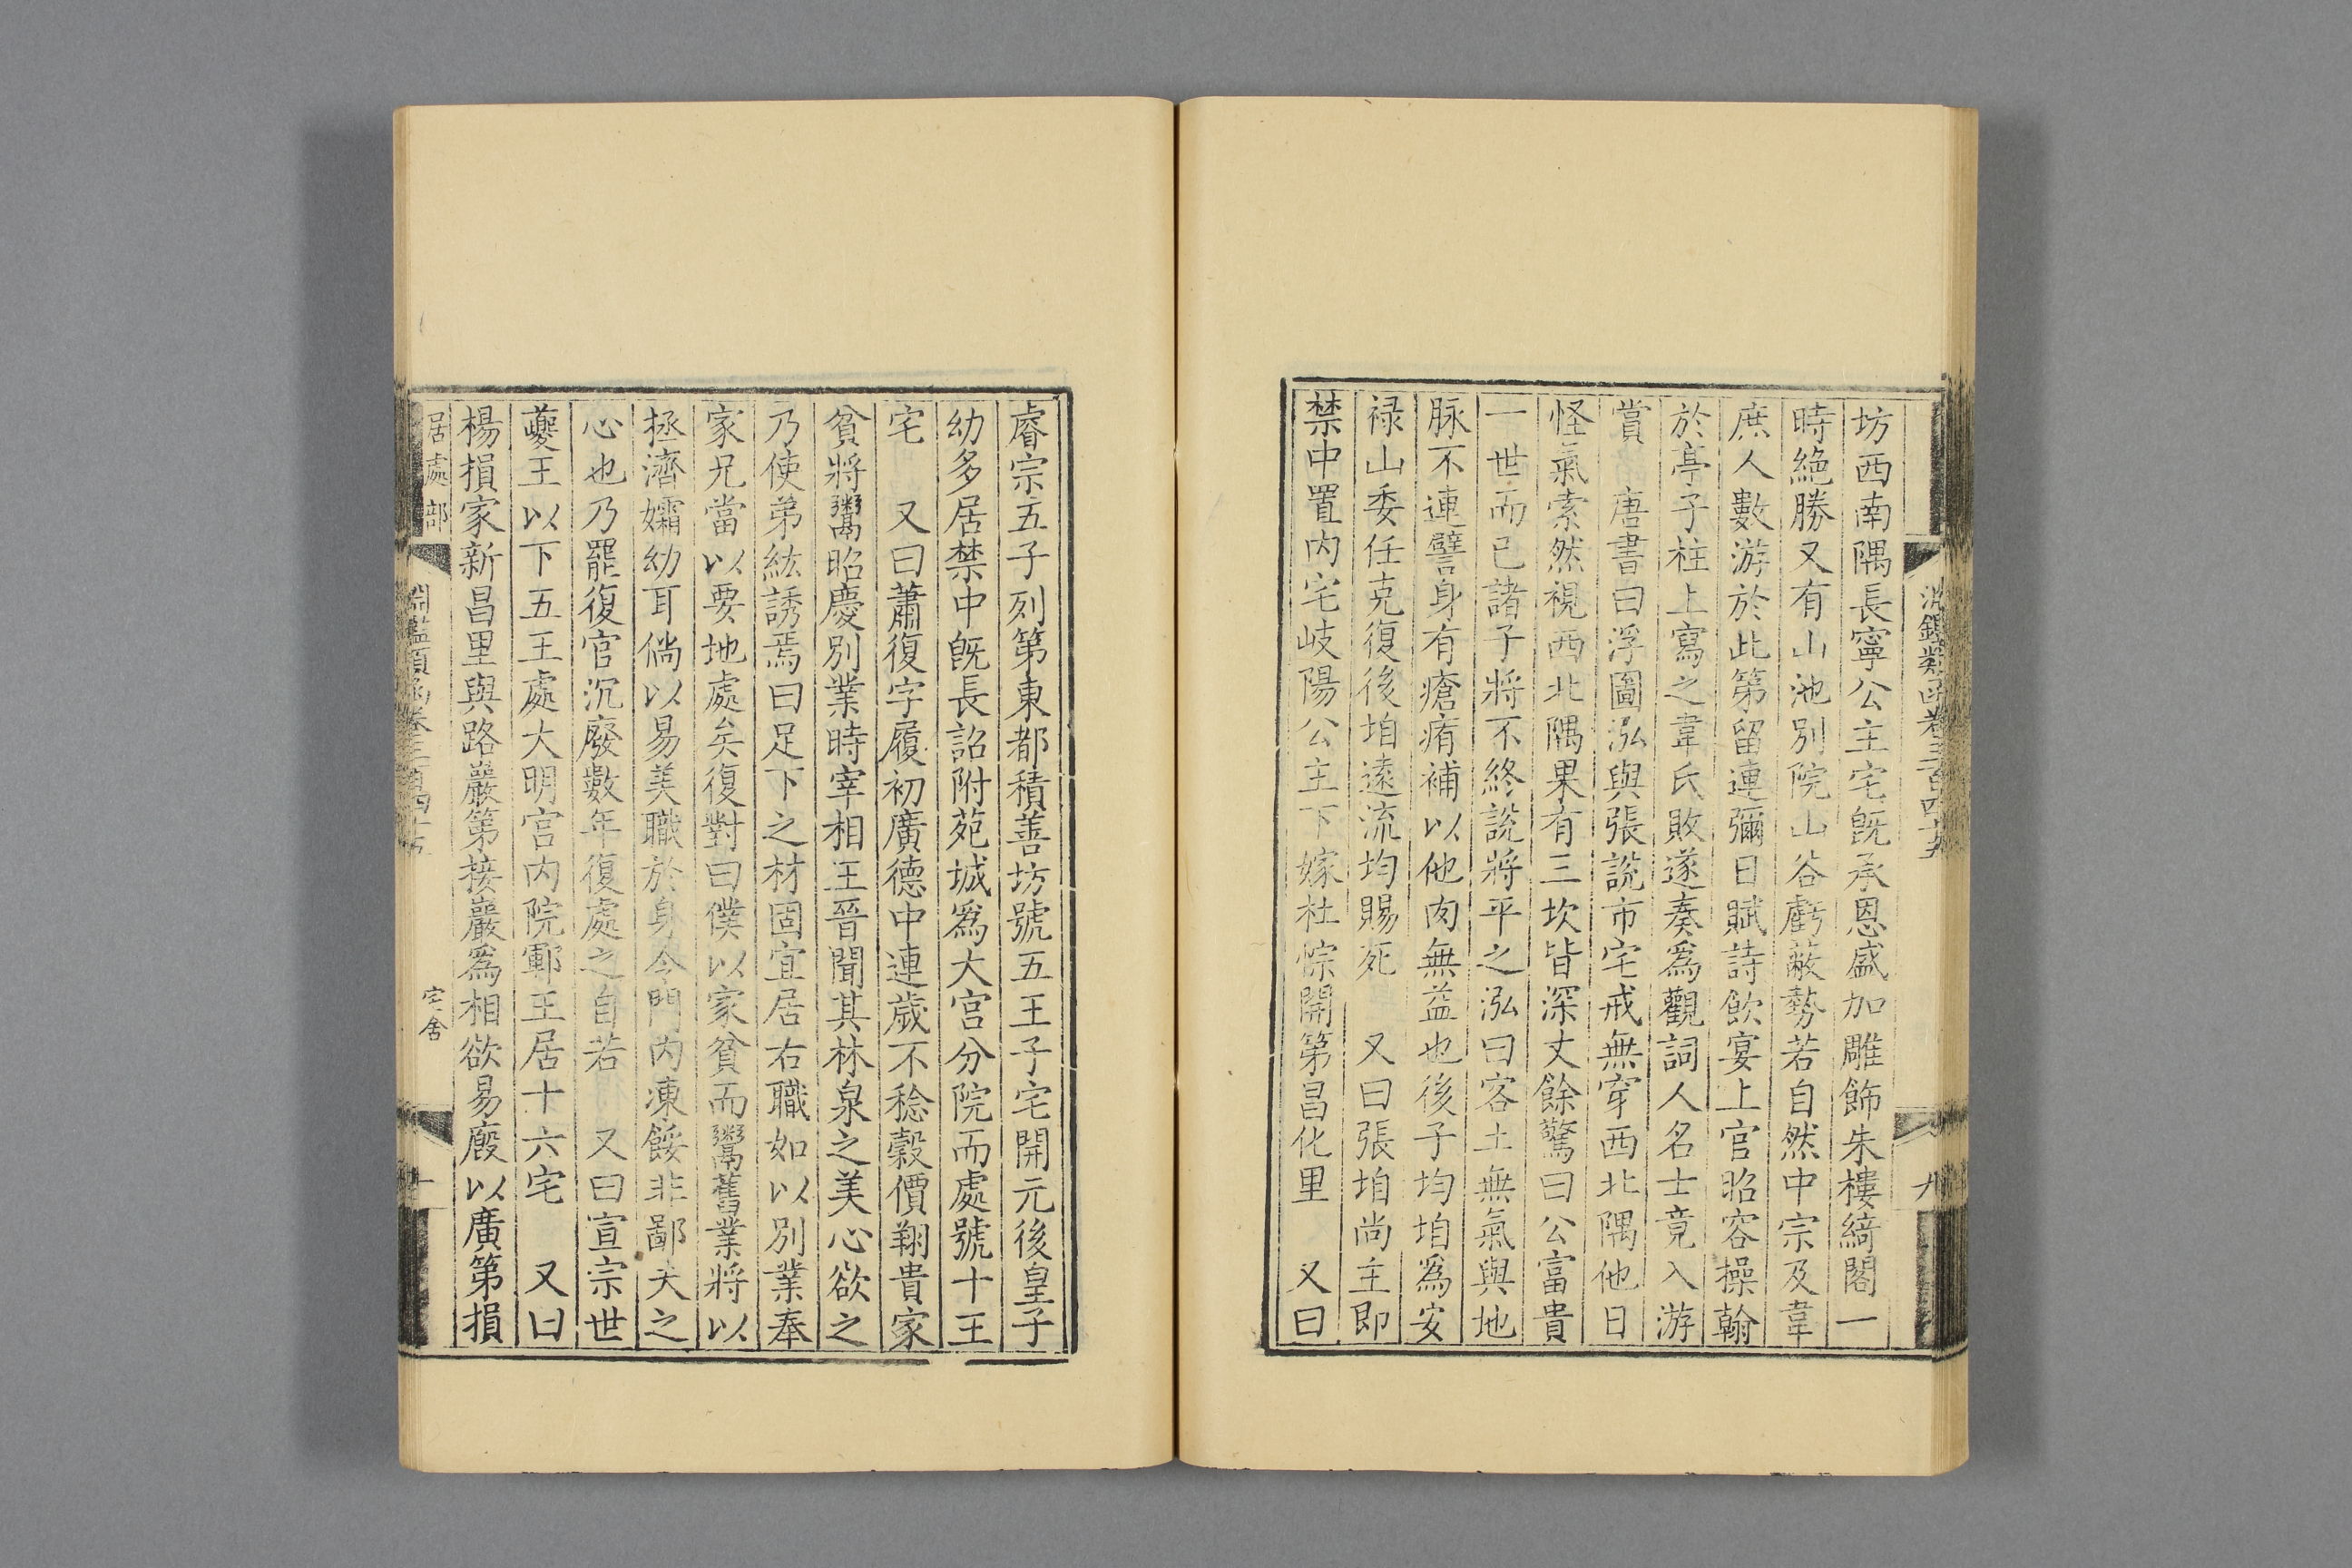 淵鑑類函卷三百四十五
九
坊西南隅長寧公主宅旣承恩盛加雕飾朱樓綺閣一
時絶勝又有山池別院山谷虧蔽勢若自然中宗及韋
庶人數游於此第留連彌日賦詩飲宴上官昭容操翰
於亭子柱上寫之韋氏敗遂奏爲觀詞人名士竟入游
賞　唐書曰浮圖泓與張說市宅戒無穿西北隅他日
怪氣索然視西北隅果有三坎皆深丈餘驚曰公富貴
一世而已諸子將不終說將平之泓曰客土無氣與地
脉不連譬身有瘡痏補以他肉無益也後子均垍爲安
禄山委任克復後垍遠流均賜死　又曰張垍尚主即
禁中置内宅岐陽公主下嫁杜悰開第昌化里　又曰
睿宗五子列第東都積善坊號五王子宅開元後皇子
幼多居禁中旣長詔附苑城爲大宫分院而處號十王
宅　又曰蕭復字履初廣德中連歲不稔穀價翔貴家
貧將鬻昭慶別業時宰相王晉聞其林泉之美心欲之
乃使弟紘誘焉曰足下之材固宜居右職如以別業奉
家兄當以要地處矣復對曰僕以家貧而鬻舊業將以
拯濟孀幼耳倘以易美職於身令門内凍餒非鄙夫之
心也乃罷復官沉廢數年復處之自若　又曰宣宗世
夔王以下五王處大明宫内院鄆王居十六宅　又曰
楊損家新昌里與路巖第接巖爲相欲易廄以廣第損
居處部
淵鑑類函卷三百四十五
宅舍
十